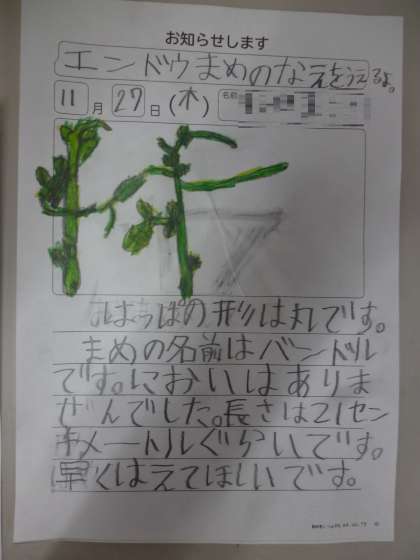 お知らせします
エンドウまめのなえをうえるよ。
11月27日(木) 名前
はっぱの形は丸です。
まめの名前はバンドル
です。においはありま
せんでした。長さは21セン
チメートルぐらいです。
早くはえてほしいです。